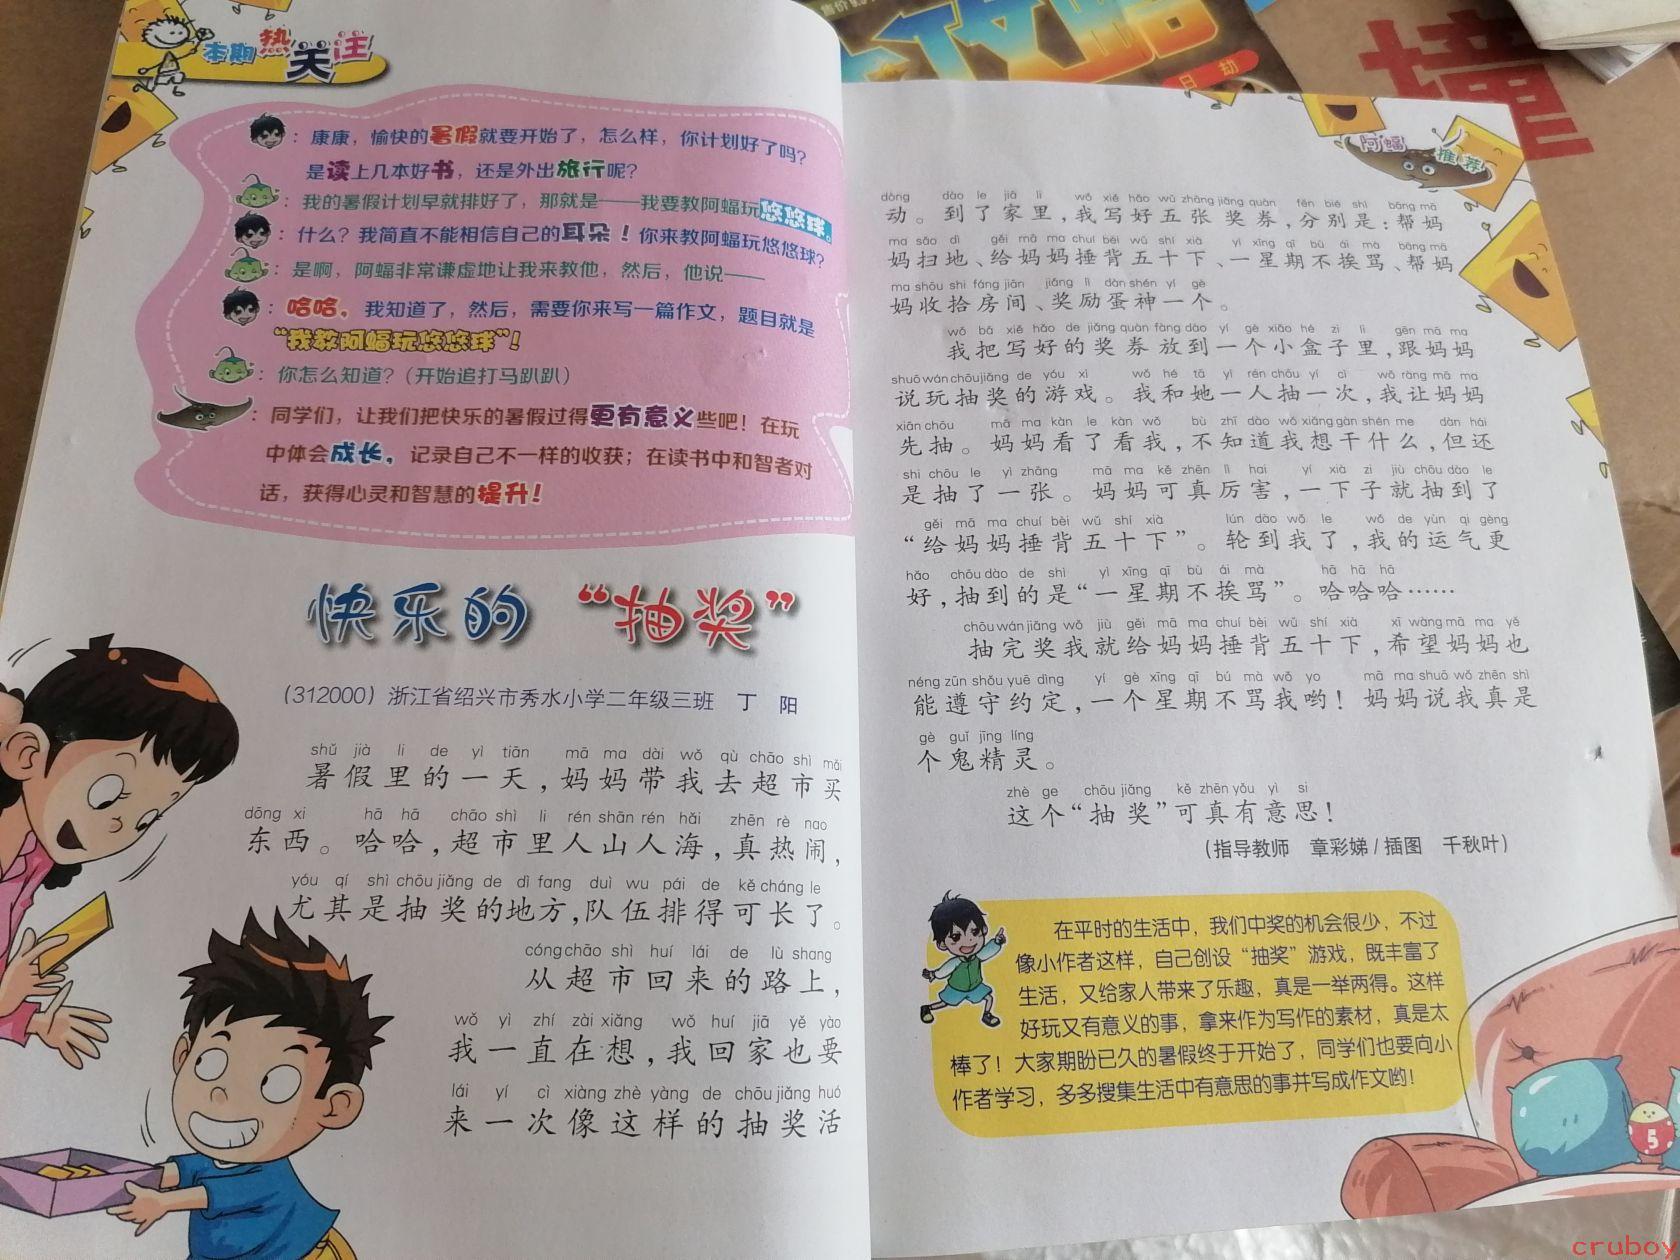 本期热关注
：康康，愉快的暑假就要开始了，怎么样，你计划好了吗？
是读上几本好书，还是外出旅行呢？
：我的暑假计划早就排好了，那就是——我要教阿蝠玩悠悠球。
：什么？我简直不能相信自己的耳朵！你来教阿蝠玩悠悠球？
：是啊，阿蝠非常谦虚地让我来教他，然后，他说——
：哈哈，我知道了，然后，需要你来写一篇作文，题目就是
“我教阿蝠玩悠悠球”！
：你怎么知道？（开始追打马趴趴）
：同学们，让我们把快乐的暑假过得更有意义些吧！在玩
中体会成长，记录自己不一样的收获；在读书中和智者对
话，获得心灵和智慧的提升！
快乐的“抽奖”
（312000）浙江省绍兴市秀水小学二年级三班 丁 阳
shǔ jià li de yì tiān mā ma dài wǒ qù chāo shì mǎi
暑假里的一天，妈妈带我去超市买
dōng xi hā hā chāo shì li rén shān rén hǎi zhēn rè nao
东西。哈哈，超市里人山人海，真热闹，
yóu qí shì chōu jiǎng de dì fang duì wu pái de kě cháng le
尤其是抽奖的地方，队伍排得可长了。
cóng chāo shì huí lái de lù shang
从超市回来的路上，
wǒ yì zhí zài xiǎng wǒ huí jiā yě yào
我一直在想，我回家也要
lái yí cì xiàng zhè yàng de chōu jiǎng huó
来一次像这样的抽奖活
阿蝠推荐
dòng dào le jiā li wǒ xiě hǎo wǔ zhāng jiǎng quàn fēn bié shì bāng mā
动。到了家里，我写好五张奖券，分别是：帮妈
ma sǎo dì gěi mā ma chuí bèi wǔ shí xià yì xīng qī bù ái mà bāng mā
妈扫地、给妈妈捶背五十下、一星期不挨骂、帮妈
ma shōu shi fáng jiān jiǎng lì dàn shén yí gè
妈收拾房间、奖励蛋神一个。
wǒ bǎ xiě hǎo de jiǎng quàn fàng dào yí gè xiǎo hé zi li gēn mā ma
我把写好的奖券放到一个小盒子里，跟妈妈
shuō wán chōu jiǎng de yóu xì wǒ hé tā yì rén chōu yí cì wǒ ràng mā ma
说玩抽奖的游戏。我和她一人抽一次，我让妈妈
xiān chōu mā ma kàn le kàn wǒ bù zhī dào wǒ xiǎng gàn shén me dàn hái
先抽。妈妈看了看我，不知道我想干什么，但还
shì chōu le yì zhāng mā ma kě zhēn lì hai yí xià zi jiù chōu dào le
是抽了一张。妈妈可真厉害，一下子就抽到了
gěi mā ma chuí bèi wǔ shí xià lún dào wǒ le wǒ de yùn qi gèng
“给妈妈捶背五十下”。轮到我了，我的运气更
hǎo chōu dào de shì yì xīng qī bù ái mà hā hā hā
好，抽到的是“一星期不挨骂”。哈哈哈……
chōu wán jiǎng wǒ jiù gěi mā ma chuí bèi wǔ shí xià xī wàng mā ma yě
抽完奖我就给妈妈捶背五十下，希望妈妈也
néng zūn shǒu yuē dìng yí gè xīng qī bú mà wǒ yo mā ma shuō wǒ zhēn shì
能遵守约定，一个星期不骂我哟！妈妈说我真是
gè guǐ jīng líng
个鬼精灵。
zhè ge chōu jiǎng kě zhēn yǒu yì si
这个“抽奖”可真有意思！
（指导教师 章彩娣/插图 千秋叶）
在平时的生活中，我们中奖的机会很少，不过
像小作者这样，自己创设“抽奖”游戏，既丰富了
生活，又给家人带来了乐趣，真是一举两得。这样
好玩又有意义的事，拿来作为写作的素材，真是太
棒了！大家期盼已久的暑假终于开始了，同学们也要向小
作者学习，多多搜集生活中有意思的事并写成作文哟！
5
cruboy